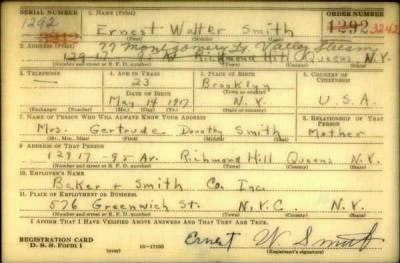 SERIAL NUMBER 1. NAME (Print) ORDER NUMBER
1292 Ernest Walter Smith 1292 3242
3242 29 Montgomery St Valley Stream
2. ADDRESS (Print)
129 17 - 95 Av Richmond Hill Queens N.Y.
(Number and street or R. F. D. number) (Town) (County) (State)
3. TELEPHONE 4. AGE IN YEARS 5. PLACE OF BIRTH 6. COUNTRY OF CITIZENSHIP
23 Brooklyn
DATE OF BIRTH (Town or county)
May 14 1917 N.Y. U.S.A.
(Exchange) (Number) (Mo.) (Day) (Yr.) (State or country)
7. NAME OF PERSON WHO WILL ALWAYS KNOW YOUR ADDRESS 8. RELATIONSHIP OF THAT PERSON
Mrs. Gertrude Dorothy Smith Mother
(Mr., Mrs., Miss) (First) (Middle) (Last)
9. ADDRESS OF THAT PERSON
129 17 - 95 Av. Richmond Hill Queens N.Y.
(Number and street or R. F. D. number) (Town) (County) (State)
10. EMPLOYER'S NAME
Baker + Smith Co. Inc.
11. PLACE OF EMPLOYMENT OR BUSINESS
576 Greenwich St. N.Y.C. N.Y.
(Number and street or R. F. D. number) (Town) (County) (State)
I AFFIRM THAT I HAVE VERIFIED ABOVE ANSWERS AND THAT THEY ARE TRUE.
REGISTRATION CARD
D. S. S. Form 1 16-17105 Ernest W. Smith
(Registrant's signature)